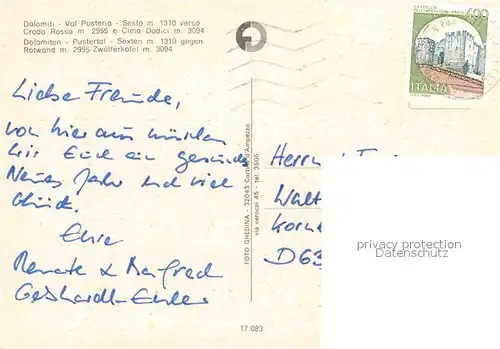 Dolomiti - Val Pusteria - Sesto m. 1310 verso
Croda Rossa m. 2955 e Cima Dodici m. 3094
Dolomiten - Pustertal - Sexten m. 1310 gegen
Rotwand m. 2955-Zwölferkofel m. 3094
400
ITALIA
Liebe Freunde,
von hier aus wünschen
wir Euch ein gesundes
Neues Jahr und viel
Glück.
Eure
Renate & Manfred
FOTO GHEDINA - 32043 Cortina d'Ampezzo
via verocai 45 - tel. 3606
Herrn
Walt
D63
privacy protection
Datenschutz
17.083